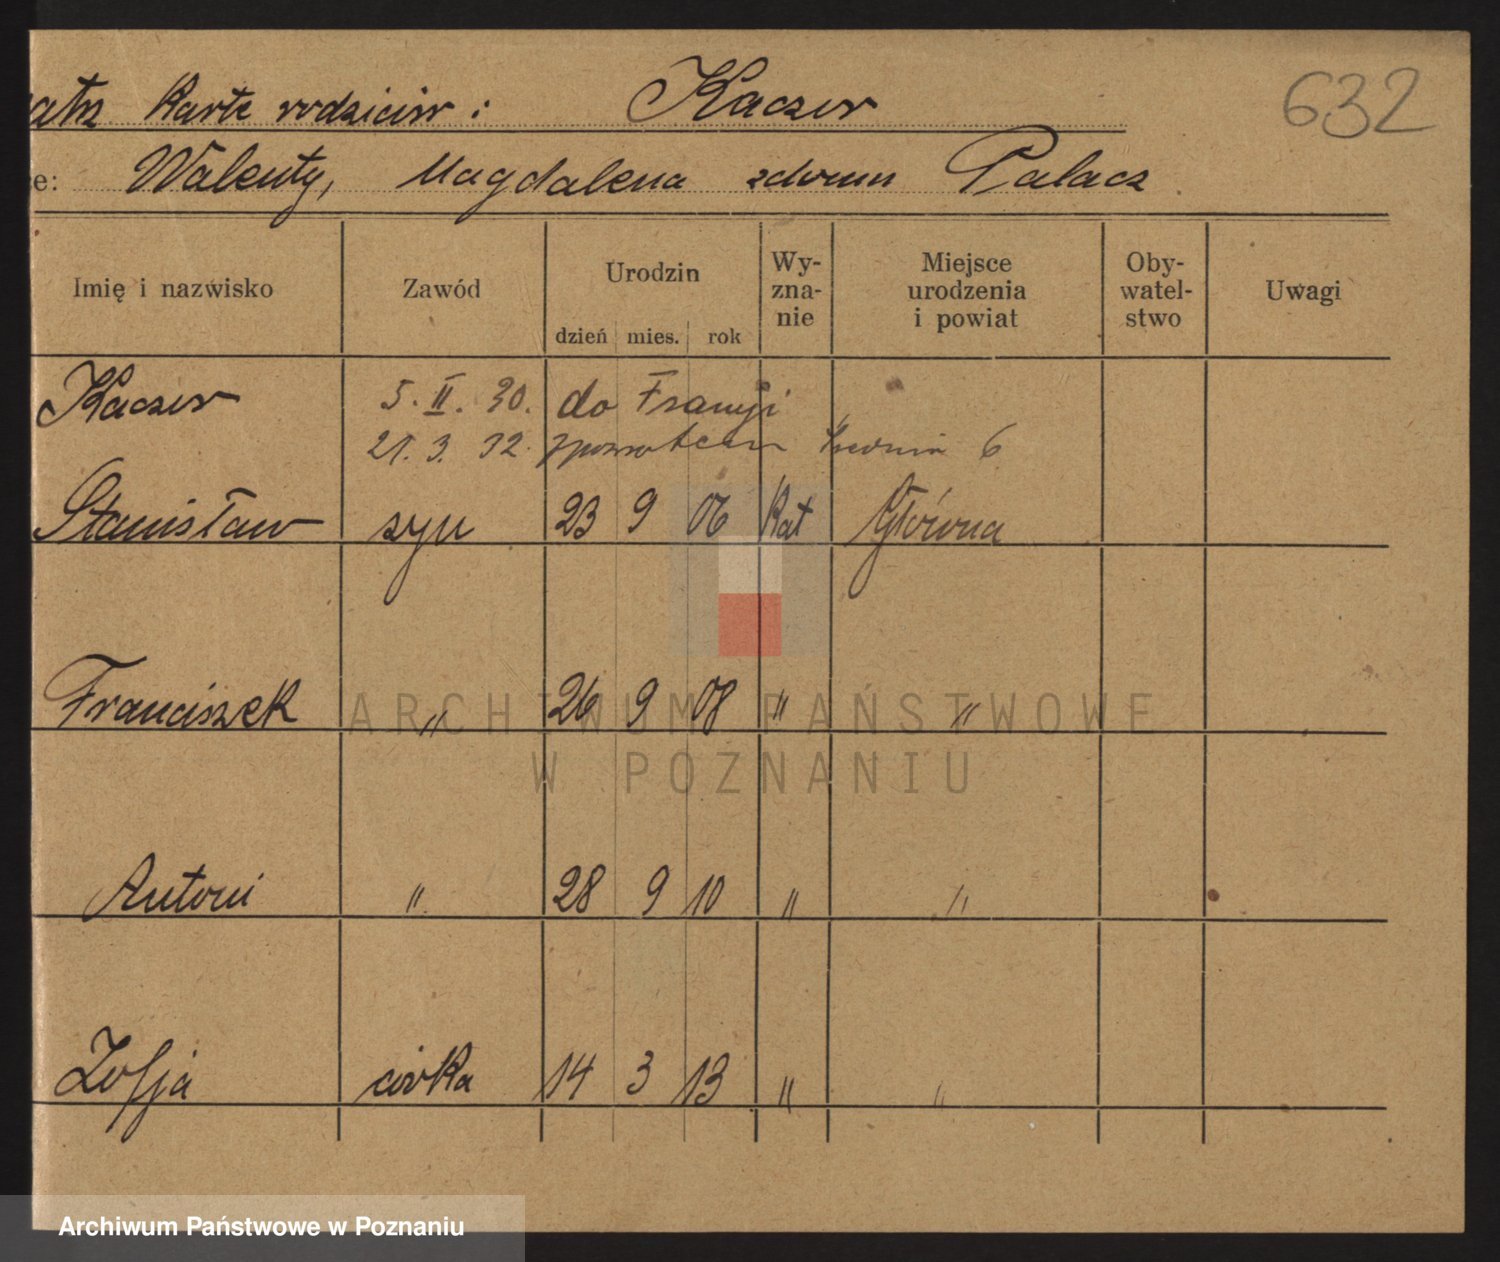 Karte rodziców: Kaczor
632
e: Walenty, Magdalena zdomu Palacz
Imię i nazwisko Zawód Urodzin Wy-zna-nie Miejsce urodzenia i powiat Oby-watel-stwo Uwagi
dzień mies. rok
Kaczor 5. II. 30. do Francji
21. 3. 32. zpowrotem Średnia 6
Stanisław syn 23 9 06 Kat Główna
Franciszek " 26 9 08 " "
Antoni " 28 9 10 " "
Zofja córka 14 3 13 " "
ARCHIWUM PAŃSTWOWE
W POZNANIU
Archiwum Państwowe w Poznaniu